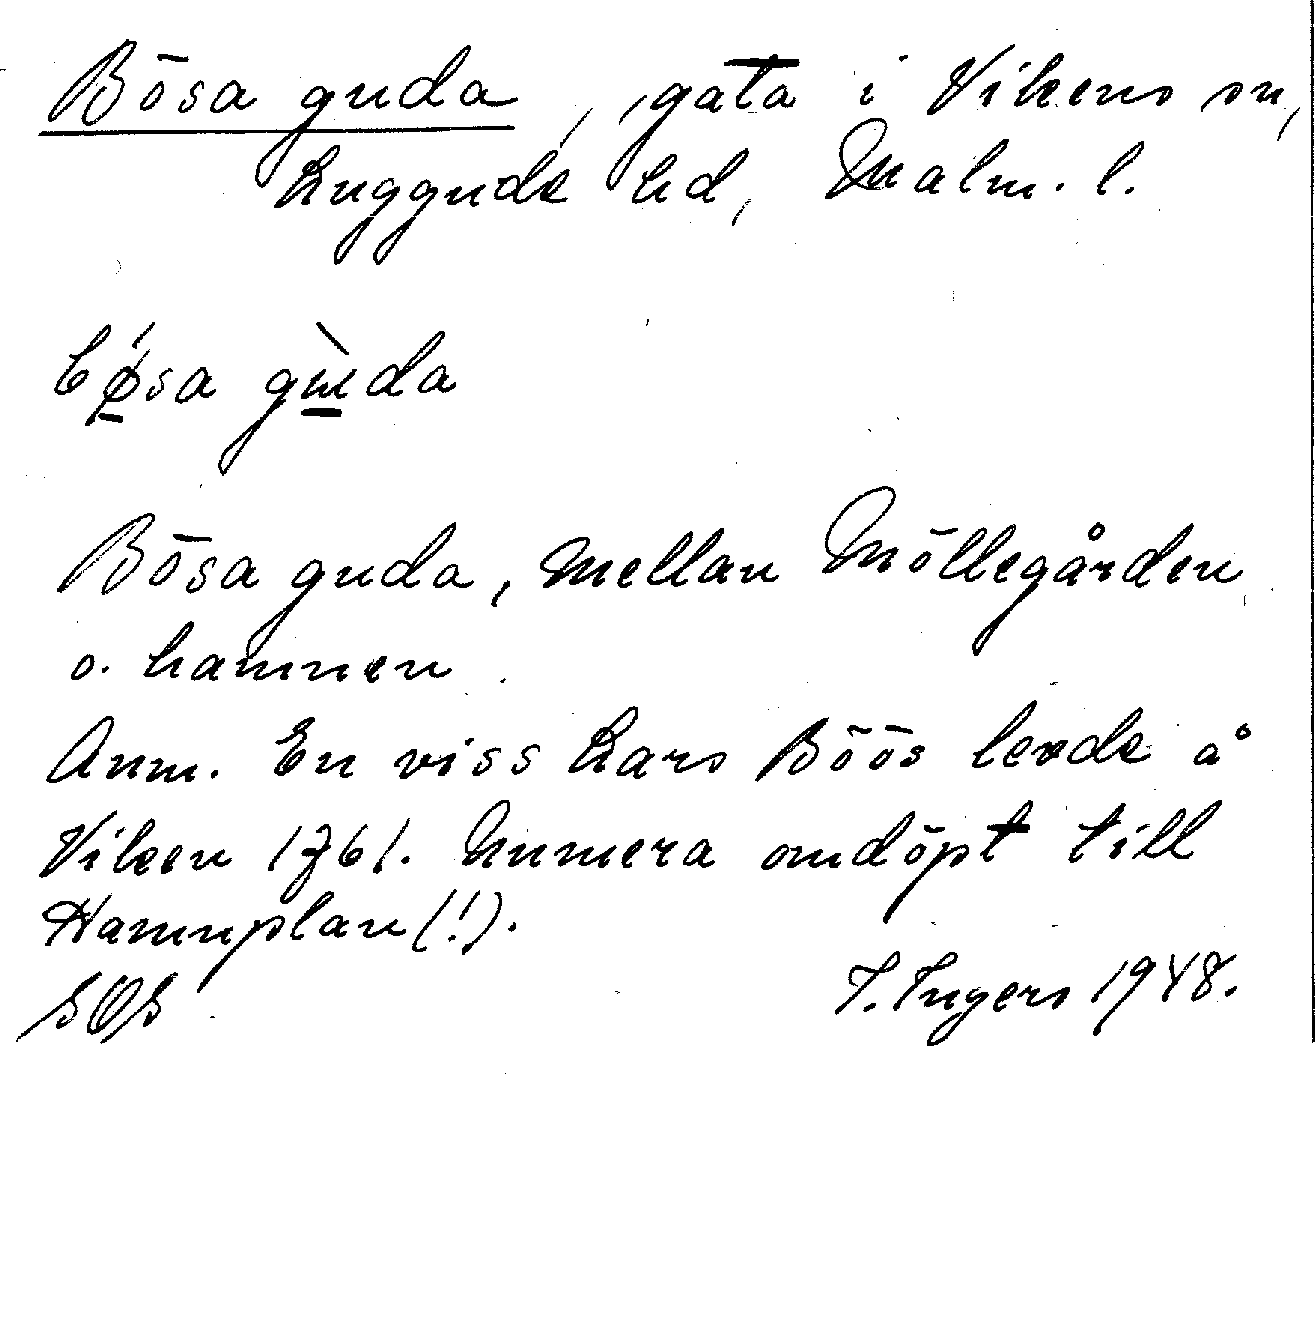 Bösa guda, gata i Vikens sn,
Luggude hd, Malm. l.
bǿ̱sa gɯ̱̀da
Bösa guda, mellan Möllegården
o. hamnen
Anm. En viss Lars Böös levde å
Viken 1761. Numera omdöpt till
Hamnplan (!).
SOS I. Ingers 1948.